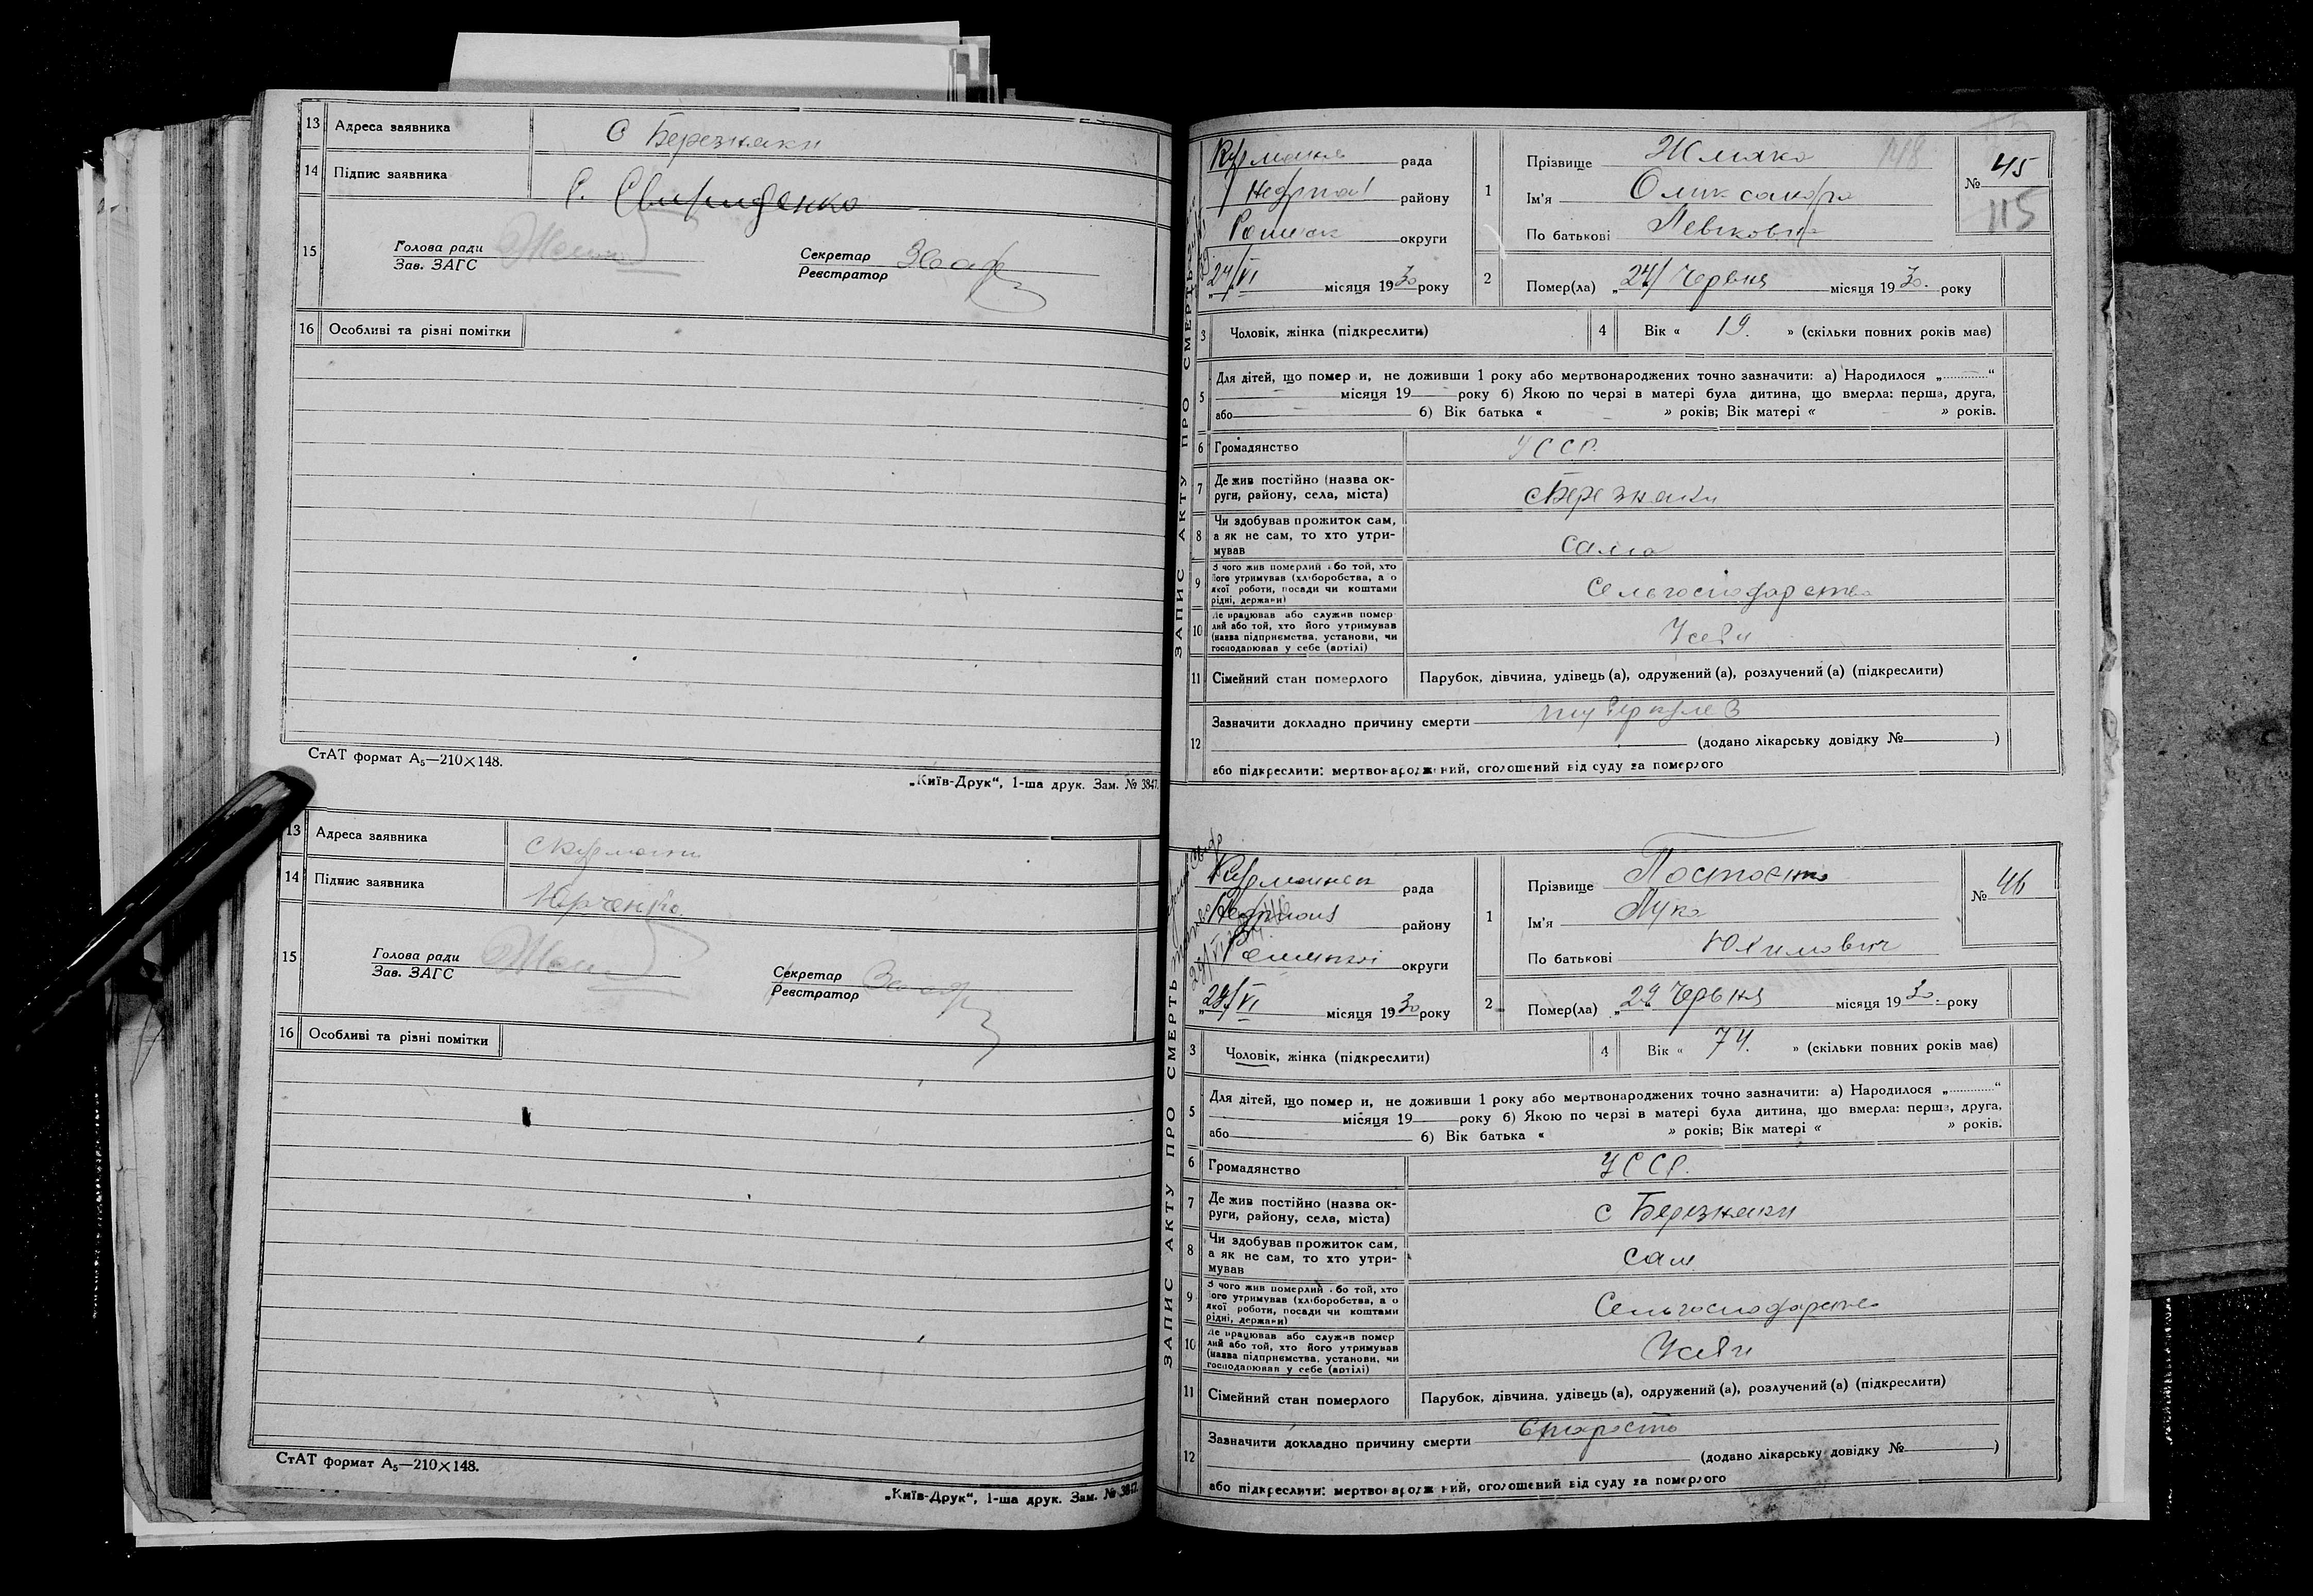 13 Адреса заявника С Березняки
14 Підпис заявника С. Свириденко
15 Голова ради
Зав. ЗАГС
Секретар
Реєстратор
16 Особливі та різні помітки
СтАТ формат А₅—210×148.
„Київ-Друк“, 1-ша друк. Зам. № 3847.
13 Адреса заявника с Курмани
14 Підпис заявника Юрченко
15 Голова ради
Зав. ЗАГС
Секретар
Реєстратор
16 Особливі та різні помітки
СтАТ формат А₅—210×148.
„Київ-Друк“, 1-ша друк. Зам. № 3847.
ЗАПИС АКТУ ПРО СМЕРТЬ
рада
району
округи
24/VI місяця 1930 року
1 Прізвище 118
Ім'я Олександра
По батькові Левковна
№ 45
115
2 Помер(ла) „24/ Червня місяця 1930. року
3 Чоловік, жінка (підкреслити)
4 Вік « 19. » (скільки повних років має)
5 Для дітей, що помер и, не доживши 1 року або мертвонароджених точно зазначити: а) Народилося „ “
місяця 19 року б) Якою по черзі в матері була дитина, що вмерла: перша, друга,
або б) Вік батька « » років; Вік матері « » років.
6 Громадянство УССР.
7 Де жив постійно (назва ок-
руги, району, села, міста) с Березняки
8 Чи здобував прожиток сам,
а як не сам, то хто утри-
мував сама
9 З чого жив померлий або той, хто
його утримував (хліборобства, а о
якої роботи, посади чи коштами
рідні, держави) Сельгосподарство
10 Де працював або служив помер
лий або той, хто його утримував
(назва підприємства, установи, чи
господарював у себе (артілі) У себи
11 Сімейний стан померлого Парубок, дівчина, удівець (а), одружений (а), розлучений (а) (підкреслити)
12 Зазначити докладно причину смерти туберкулез
(додано лікарську довідку № )
або підкреслити: мертвонароджений, оголошений від суду за померлого
ЗАПИС АКТУ ПРО СМЕРТЬ
рада
району
округи
29/VI місяця 1930 року
1 Прізвище
Ім'я Лука
По батькові Юхимович
№ 46
2 Помер(ла) „29 Червня місяця 1930. року
3 Чоловік, жінка (підкреслити)
4 Вік « 74. » (скільки повних років має)
5 Для дітей, що помер и, не доживши 1 року або мертвонароджених точно зазначити: а) Народилося „ “
місяця 19 року б) Якою по черзі в матері була дитина, що вмерла: перша, друга,
або б) Вік батька « » років; Вік матері « » років.
6 Громадянство УССР.
7 Де жив постійно (назва ок-
руги, району, села, міста) с Березняки
8 Чи здобував прожиток сам,
а як не сам, то хто утри-
мував сам
9 З чого жив померлий або той, хто
його утримував (хліборобства, а о
якої роботи, посади чи коштами
рідні, держави) Сельгосподарство
10 Де працював або служив помер
лий або той, хто його утримував
(назва підприємства, установи, чи
господарював у себе (артілі) У себи
11 Сімейний стан померлого Парубок, дівчина, удівець (а), одружений (а), розлучений (а) (підкреслити)
12 Зазначити докладно причину смерти Старость
(додано лікарську довідку № )
або підкреслити: мертвонароджений, оголошений від суду за померлого